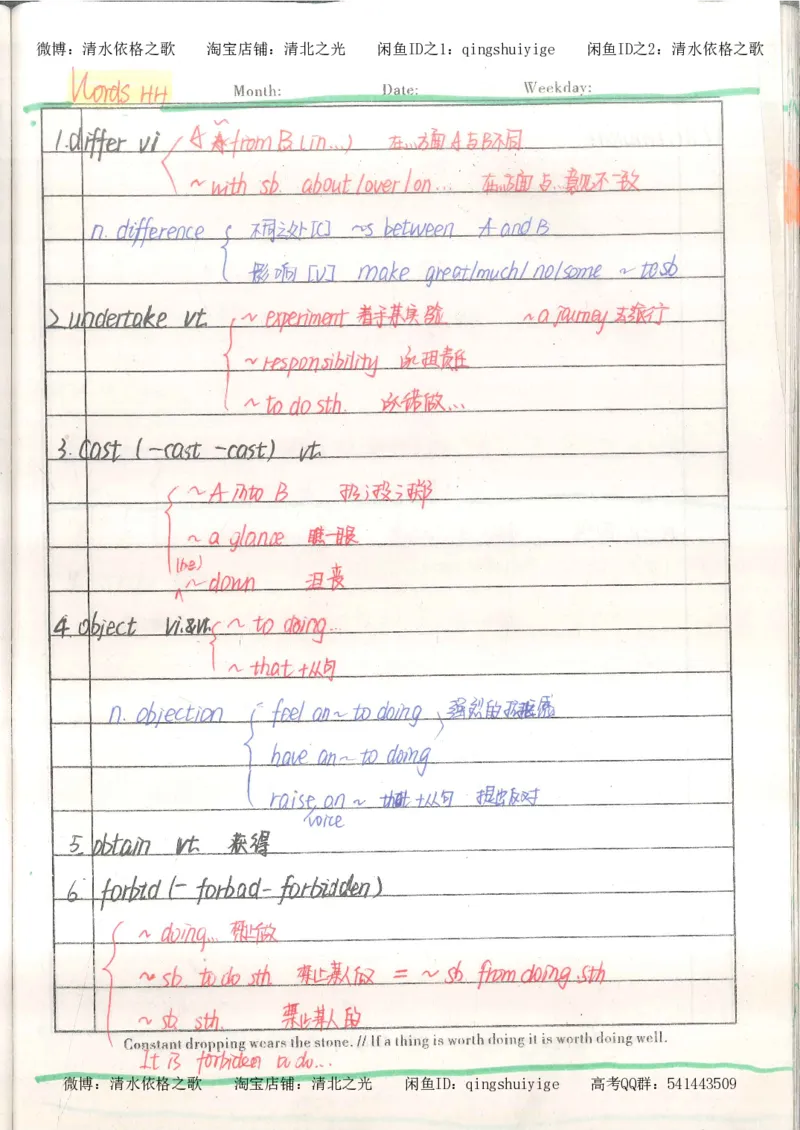 微博：清水依格之歌 淘宝店铺：清北之光 闲鱼ID之1：qingshuiyige 闲鱼ID之2：清水依格之歌
Words HH Month: Date: Weekday:
1.differ vi A ~ from B (in...) 在...方面A与B不同
~ with sb. about/over/on... 在...方面与...意见不一致
n. difference 不同之处[C] ~s between A and B
影响[U] make great/much/no/some ~ to sb
2.undertake vt. ~ experiment 着手某实验 ~ a journey 去旅行
~ responsibility 承担责任
~ to do sth. 承诺做...
3.cast (-cast -cast) vt.
~ A into B 扔;投;掷
~ a glance 瞧一眼
(be)
~ down 沮丧
4.object vi.&vt. ~ to doing...
~ that +从句
n. objection feel an ~ to doing 强烈的
have an ~ to doing
raise an ~ that +从句 提出反对
voice
5.obtain vt. 获得
6 forbid (- forbad - forbidden)
~ doing... 禁止做
~ sb. to do sth. 禁止某人做 = ~ sb. from doing sth
~ sb. sth. 禁止某人的
Constant dropping wears the stone. // If a thing is worth doing it is worth doing well.
It is forbiden to do...
微博：清水依格之歌 淘宝店铺：清北之光 闲鱼ID：qingshuiyige 高考QQ群：541443509